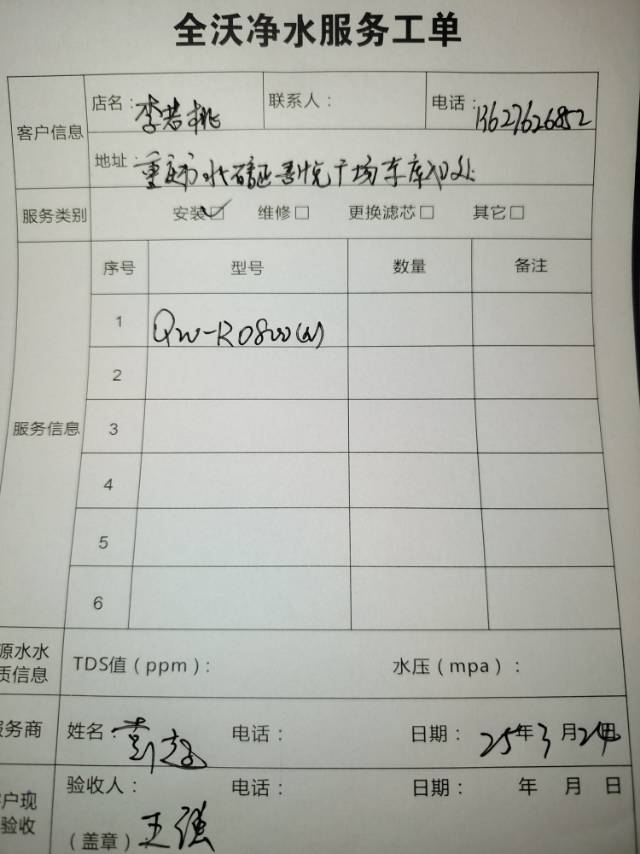 全沃净水服务工单
店名：李若桃 联系人： 电话：13627626852
客户信息
地址：重庆市永川区吾悦广场车库入口处
服务类别 安装☑ 维修□ 更换滤芯□ 其它□
序号 型号 数量 备注
1 QW-RO800(A)
2
服务信息 3
4
5
6
源水水
质信息 TDS值（ppm）： 水压（mpa）：
服务商 姓名： 电话： 日期：25年3月24日
客户现 验收人： 电话： 日期： 年 月 日
验收 （盖章）王强